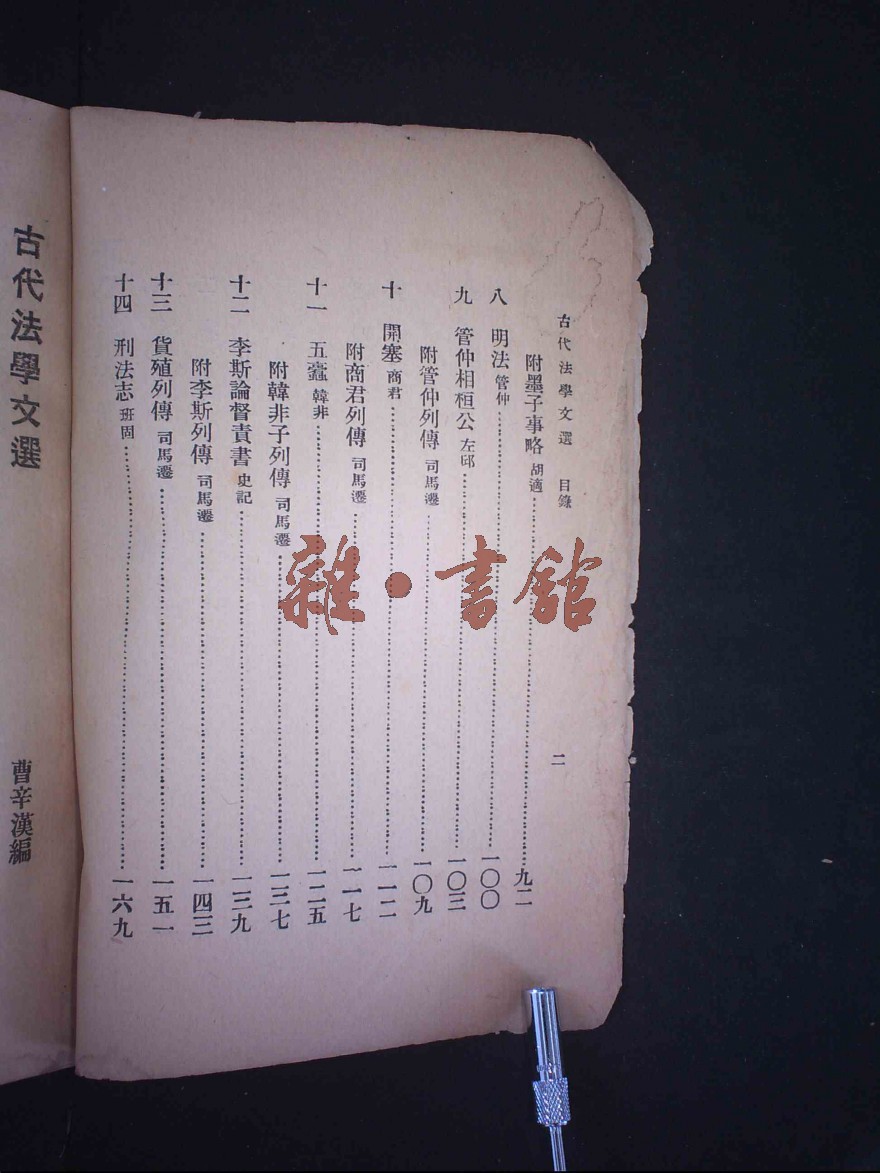 古代法學文選　目錄
二
附墨子事略 胡適……九二
八　明法 管仲……一〇〇
九　管仲相桓公 左邱……一〇三
附管仲列傳 司馬遷……一〇九
十　開塞 商君……一一二
附商君列傳 司馬遷……一一七
十一　五蠹 韓非……一二五
附韓非子列傳 司馬遷……一三七
十二　李斯論督責書 史記……一三九
附李斯列傳 司馬遷……一四三
十三　貨殖列傳 司馬遷……一五一
十四　刑法志 班固……一六九
古代法學文選
曹辛漢編
雜·書館